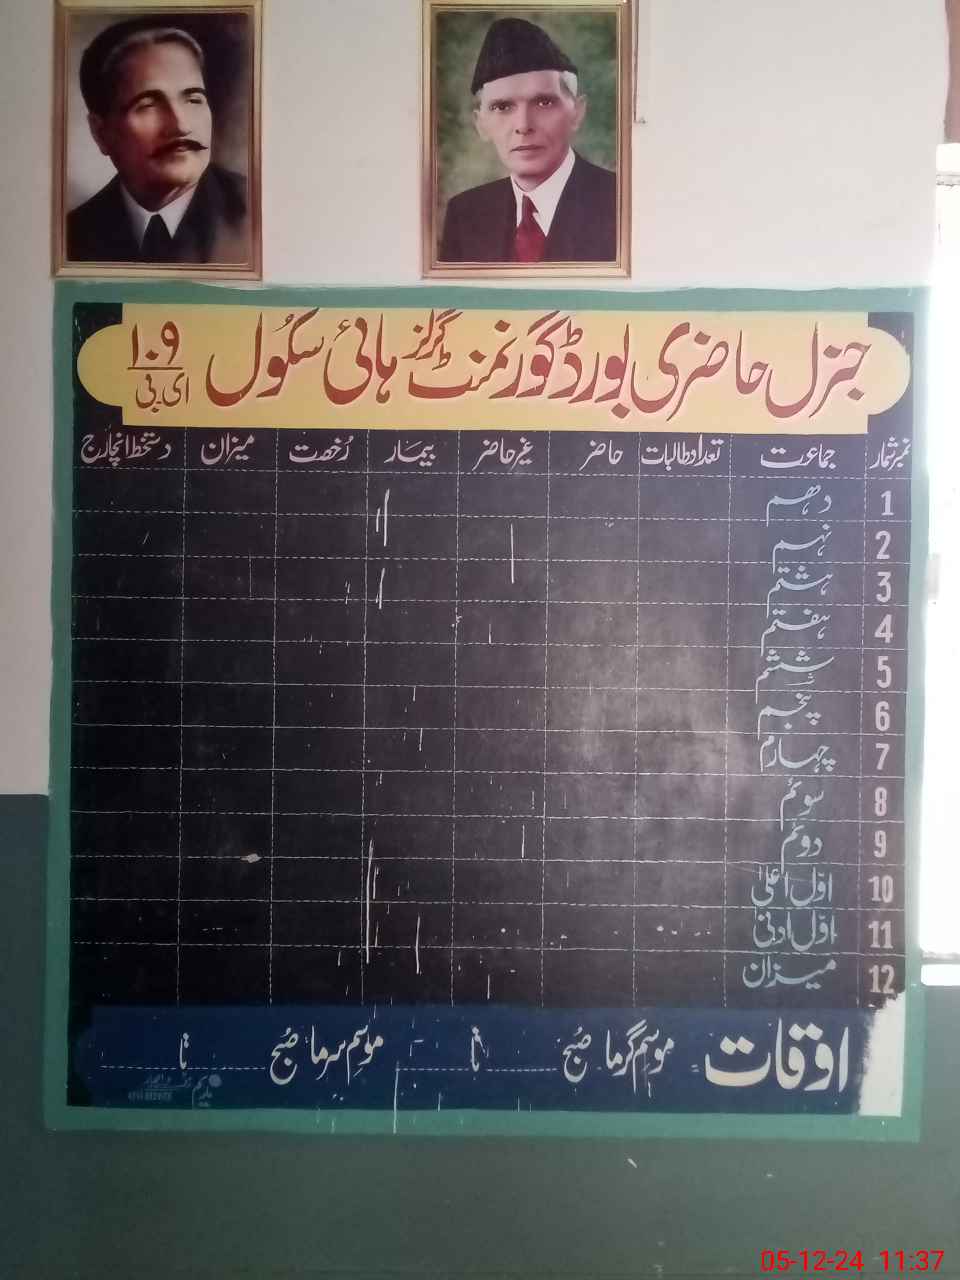 جنرل حاضری بورڈ گورنمنٹ گرلز ہائی سکول ۱۰۹ ای بی
نمبر شمار جماعت تعداد طالبات حاضر غیر حاضر بیمار رُخصت میزان دستخط انچارج
1 دہم
2 نہم
3 ہشتم
4 ہفتم
5 ششم
6 پنجم
7 چہارم
8 سوئم
9 دوئم
10 اوّل اعلیٰ
11 اوّل ادنیٰ
12 میزان
اوقات موسم گرما صُبح تا موسم سرما صُبح تا
05-12-24 11:37